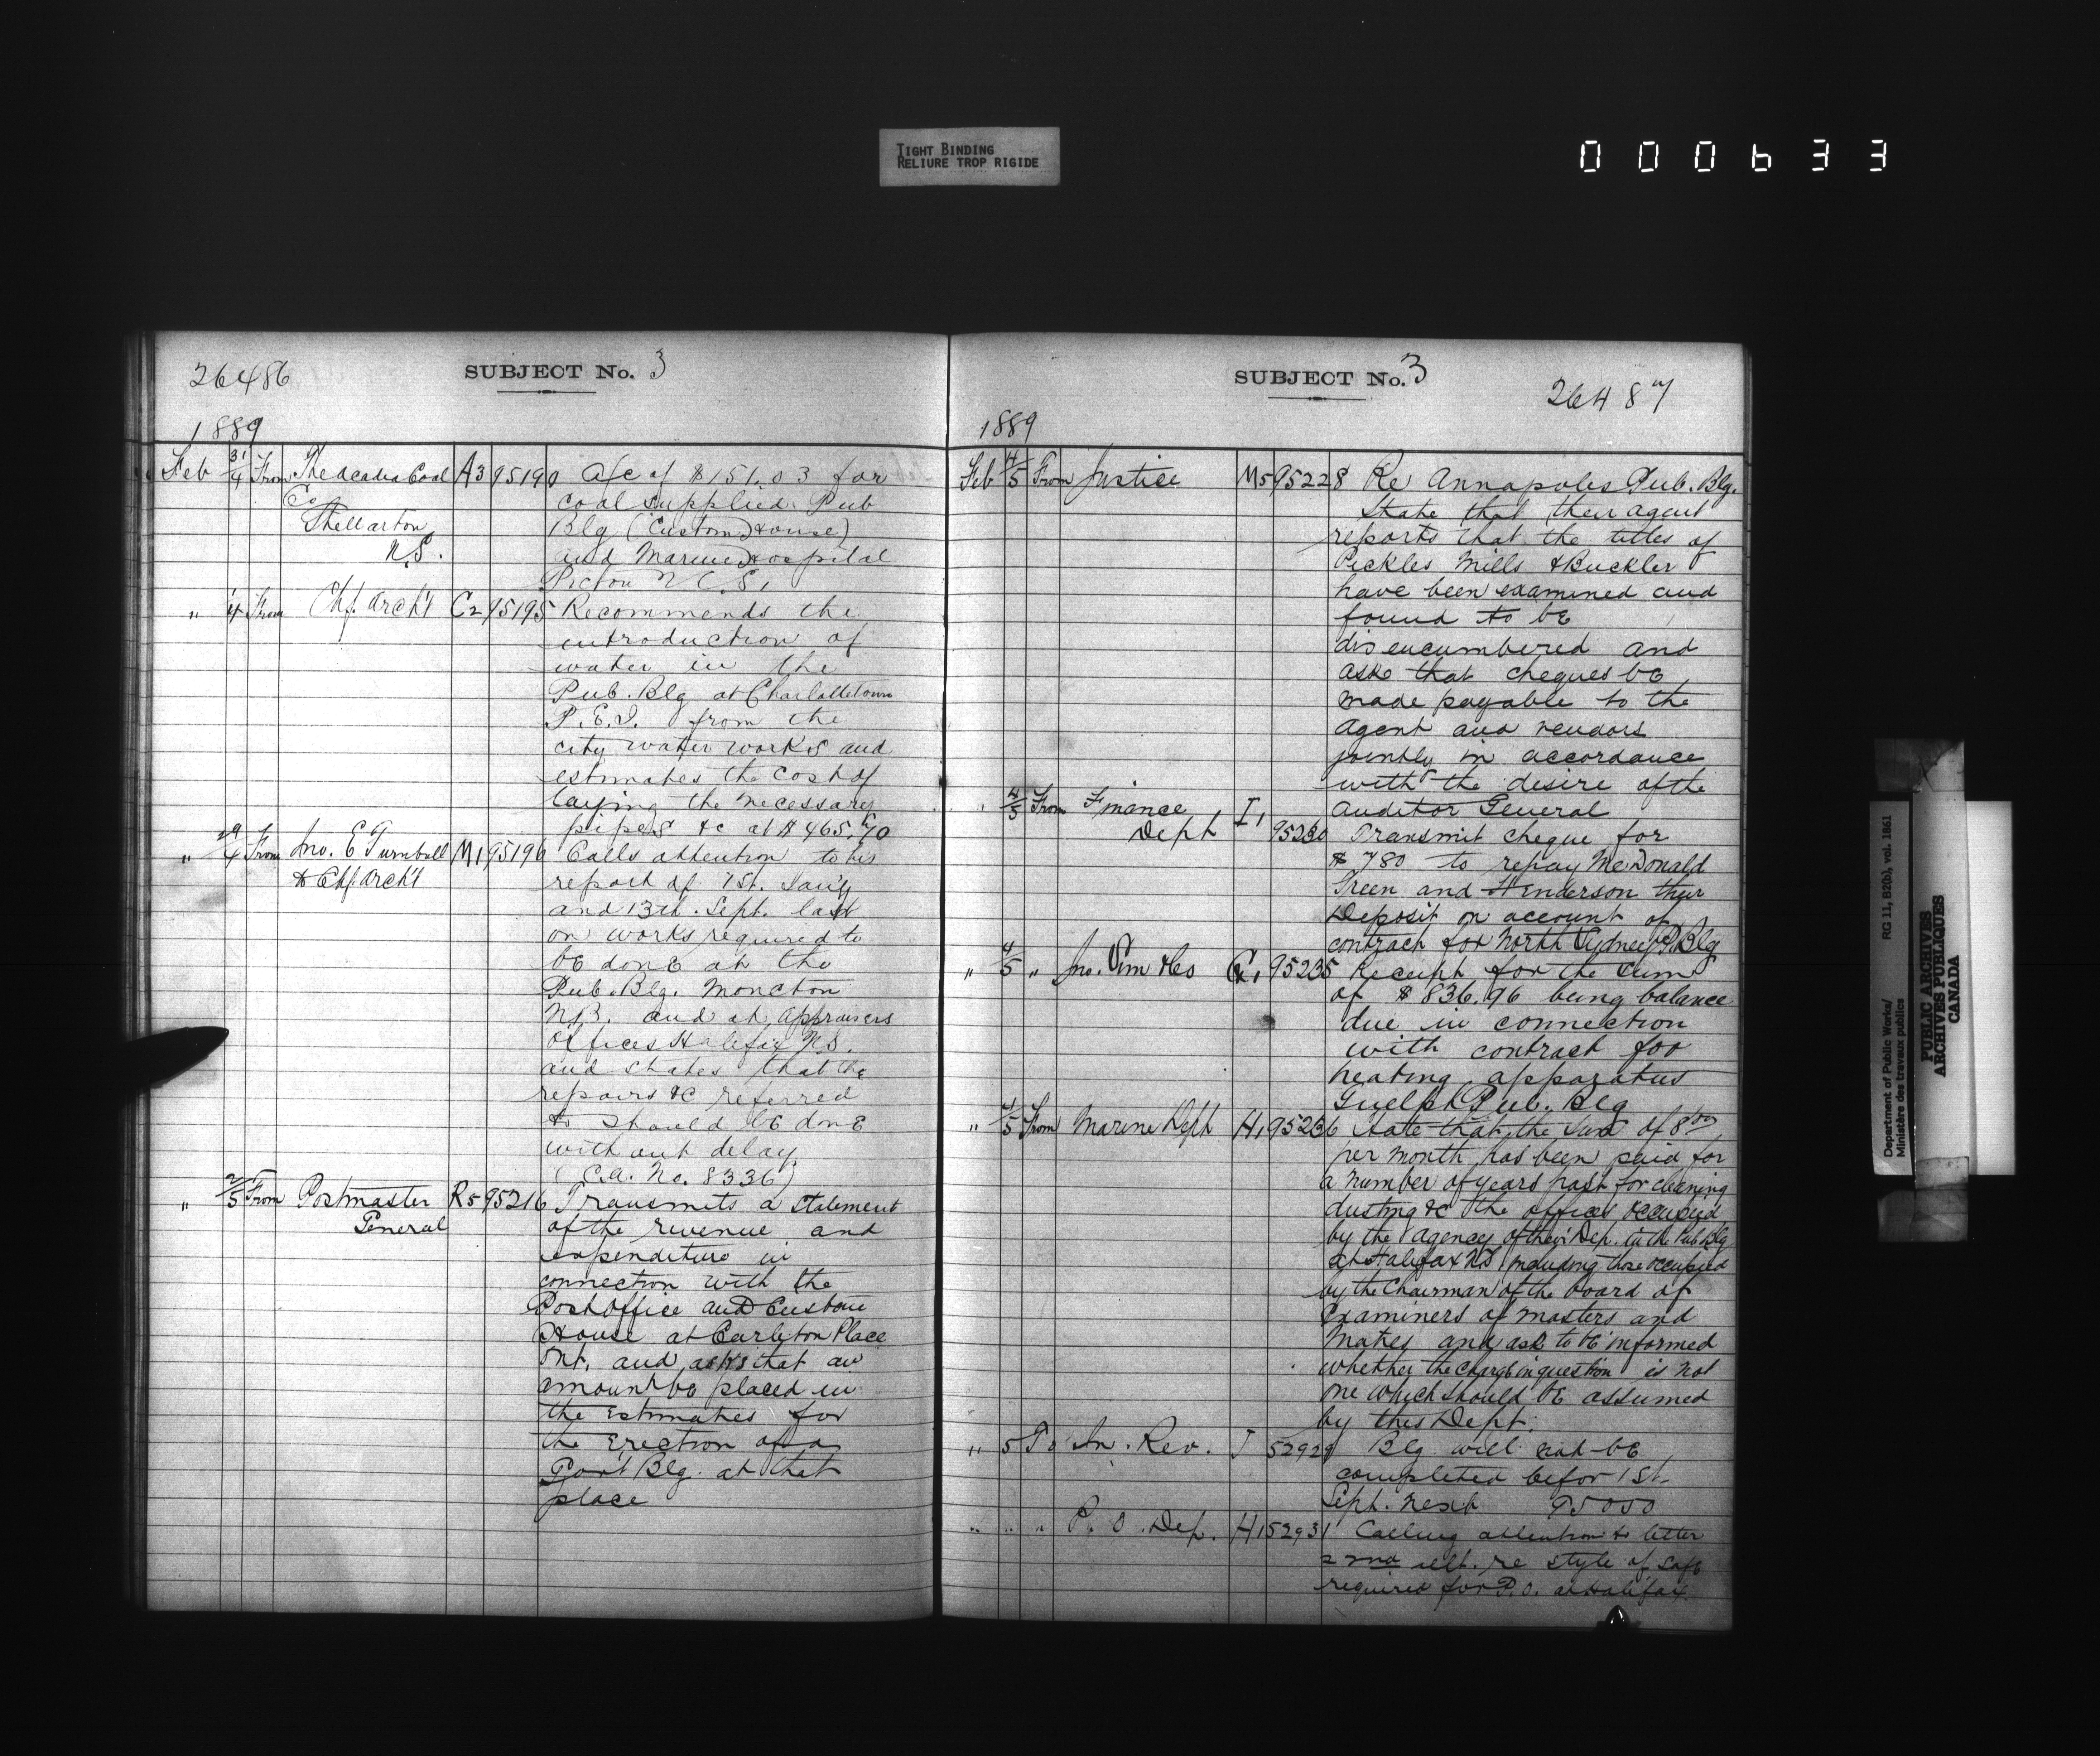 TIGHT BINDING
RELIURE TROP RIGIDE
000633
26486
SUBJECT No. 3
1889
Feb 31/4 From The Acadia Coal A3 95190 A/c of $151.03 for
Co coal supplied Pub
Stellarton Blg (Custom House)
N.S. and Marine Hospital
Pictou N.S.
" 4 From Chf. Arch't C2 95195 Recommends the
introduction of
water in the
Pub. Blg at Charlottetown
P.E.I. from the
city water works and
estimates the cost of
laying the necessary
pipes &c at $465.70
" 29/4 From Jno. E Turnbull M1 95196 Calls attention to his
& Chf. Arch't report of 7st. Jan'y
and 13th. Sept. last
on works required to
be done at the
Pub. Blg. Moncton
N.B. and at appraisers
offices Halifax N.S.
and states that the
repairs &c referred
to should be done
without delay
(C.A. No. 8336)
" 2/5 From Postmaster R5 95216 Transmits a statement
General of the revenue and
expenditure in
connection with the
Post Office and Custom
House at Carleton Place
Ont. and asks that an
amount be placed in
the estimates for
the erection of a
Govt Blg. at that
place
SUBJECT No. 3
26487
1889
Feb 4/5 From Justice M5 95228 Re Annapolis Pub. Blg.
State that their agent
reports that the titles of
Pickles Mills & Buckler
have been examined and
found to be
disencumbered and
ask that cheques be
made payable to the
agent and vendors
jointly in accordance
with the desire of the
Auditor General
" 4/5 From Finance Dept I1 95230 Transmit cheque for
$780 to repay McDonald
Green and Henderson their
Deposit on account of
contract for North Sydney P. Blg
" 4/5 " Jno. Pim &Co G1 95235 Receipt for the sum
of $836.96 being balance
due in connection
with contract for
heating apparatus
Guelph Pub. Blg
" 4/5 From Marine Dept H1 95236 State that the sum of 8 00
per month has been paid for
a number of years past for cleaning
dusting &c the offices occupied
by the agency of their Dep. in the Pub Blg
at Halifax NS including those occupied
by the Chairman of the board of
Examiners of Masters and
Mates and ask to be informed
whether the charge in question is not
one which should be assumed
by this Dept.
" 5 To In. Rev. J 52929 Blg will not be
completed befor 1st.
Sept. next 95050
" " " P. O. Dep. H1 52931 Calling attention to letter
2nd ult. re style of safe
required for P.O. at Halifax.
Department of Public Works/
Ministère des travaux publics
RG 11, B2(b), vol. 1861
PUBLIC ARCHIVES
ARCHIVES PUBLIQUES
CANADA